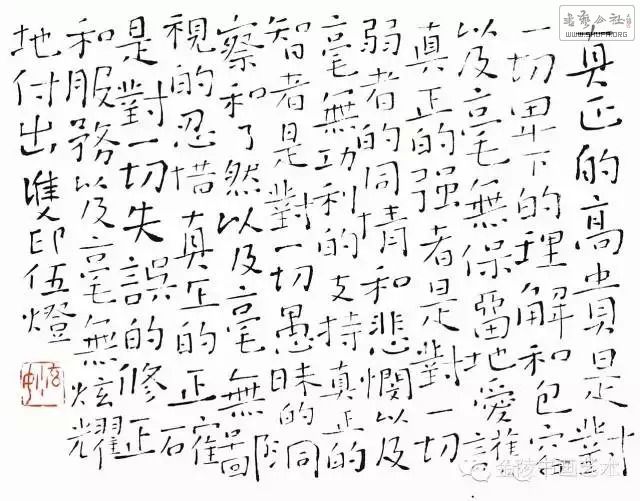 真正的高貴是對
一切卑下的理解和包容
以及毫無保留地愛護
真正的强者是對一切
弱者的同情和悲憫以及
毫無功利的支持真正的
智者是對一切愚昧的洞
察和了然以及毫無鄙
視的忍惜真正的正確
是對一切失誤的修正
和服務以及毫無炫耀
地付出 雙印伍燈
WWW.SHUFA.ORG